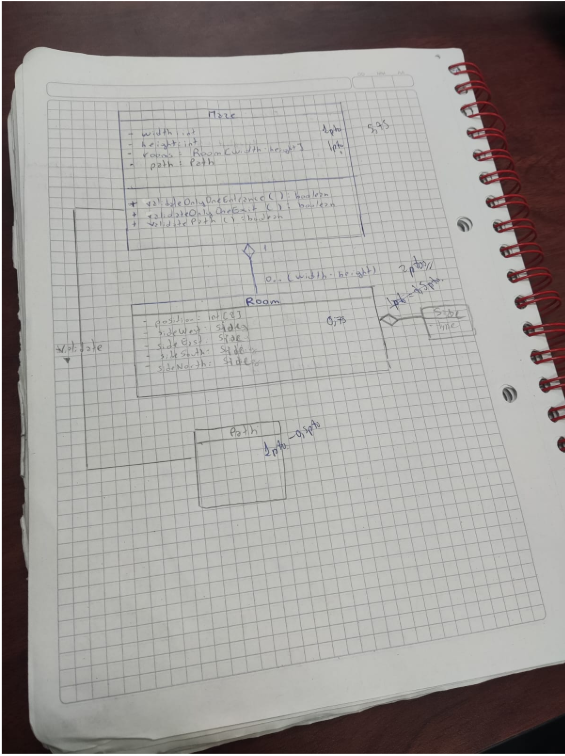 Maze
- width: int
- height: int
- rooms: Room[width·height]
- path: Path
1pto
1pto
5,75
+ validateOnlyOneEntrance(): boolean
+ validateOnlyOneExit(): boolean
+ validatePath(): boolean
1
0...(width·height)
2pto
Room
- position: int[2]
- sideWest: Side
- sideEast: Side
- sideSouth: Side
- sideNorth: Side
0,75
Side
validate
Path